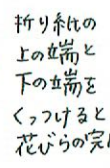 折り紙の
上の端と
下の端を
くっつけると
花びらの完